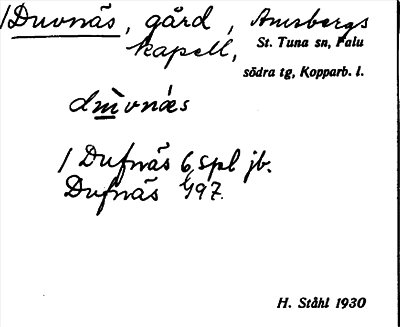 Duvnäs, gård, Amsbergs
kapell, St. Tuna sn, Falu
södra tg, Kopparb. l.
1 Dufnäs 6 spl jb.
Dufnäs
H. Ståhl 1930